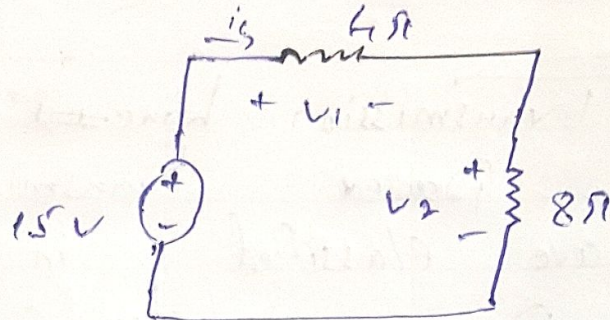 is 4Ω
+ V1 -
+
-
15 V
+
V2
-
8Ω